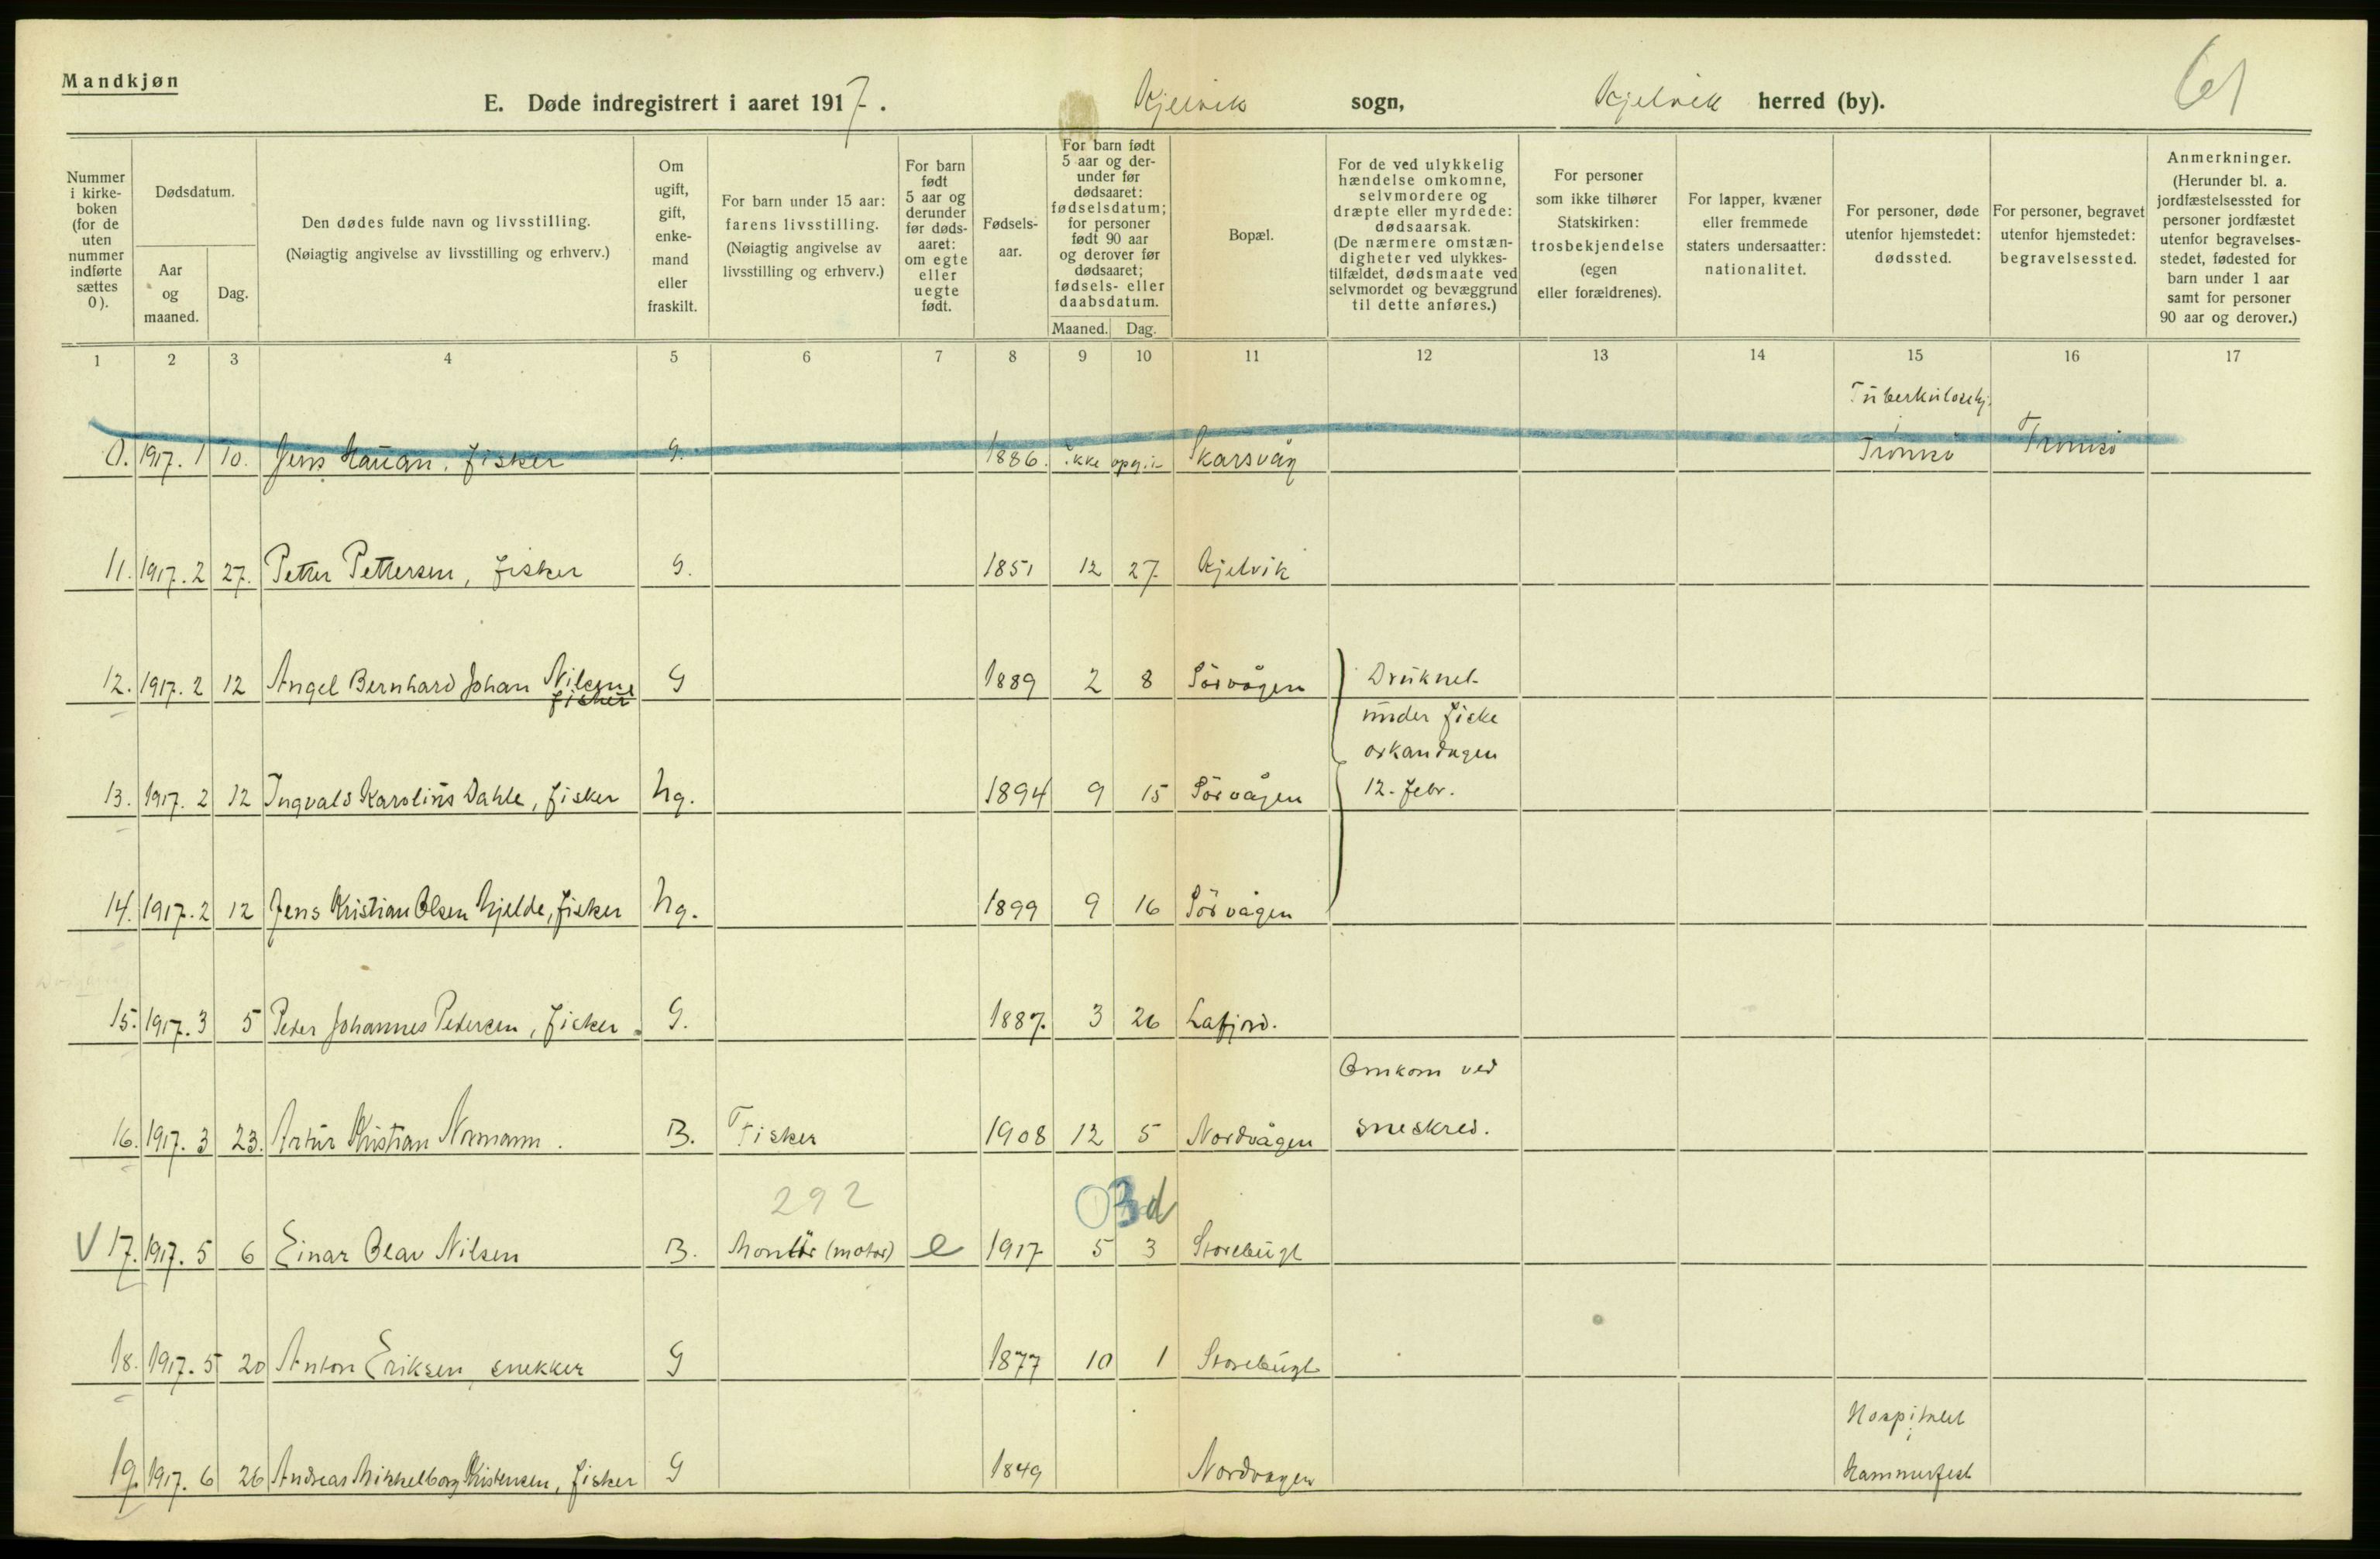 Mandkjøn
61
E. Døde indregistrert i aaret 1917. Kjelvik sogn, Kjelvik herred (by).
Nummer i kirke-boken (for de uten nummer indførte sættes 0).
Dødsdatum.
Aar og maaned.
Dag.
Den dødes fulde navn og livsstilling.
(Nøiagtig angivelse av livsstilling og erhverv.)
Om ugift, gift, enke-mand eller fraskilt.
For barn under 15 aar: farens livsstilling. (Nøiagtig angivelse av livsstilling og erhverv.)
For barn født 5 aar og derunder før døds-aaret: om egte eller uegte født.
Fødsels-aar.
For barn født 5 aar og der-under før dødsaaret: fødselsdatum; for personer født 90 aar og derover før dødsaaret; fødsels- eller daabsdatum.
Maaned. Dag.
Bopæl.
For de ved ulykkelig hændelse omkomne, selvmordere og dræpte eller myrdede: dødsaarsak. (De nærmere omstæn-digheter ved ulykkes-tilfældet, dødsmaate ved selvmordet og bevæggrund til dette anføres.)
For personer som ikke tilhører Statskirken: trosbekjendelse (egen eller forældrenes).
For lapper, kvæner eller fremmede staters undersaatter: nationalitet.
For personer, døde utenfor hjemstedet: dødssted.
For personer, begravet utenfor hjemstedet: begravelsessted.
Anmerkninger. (Herunder bl. a. jordfæstelsessted for personer jordfæstet utenfor begravelses-stedet, fødested for barn under 1 aar samt for personer 90 aar og derover.)
1 2 3 4 5 6 7 8 9 10 11 12 13 14 15 16 17
0. 1917. 1 10. Jens Hauan, fisker G. 1886. ikke opg. Skarsvåg Tromsø Tromsø
11. 1917. 2 27. Petter Pettersen, fisker G. 1851 12 27. Kjelvik
12. 1917. 2 12 Angel Bernhard Johan Nilsen fisker G 1889 2 8 Sörvågen Druknet
under fiske
orkandagen
13. 1917. 2 12 Ingvald Karolius Dahle, fisker Ug. 1894 9 15 Sörvågen 12. febr.
14. 1917. 2 12 Jens Kristian Olsen Mjelde, fisker Ug. 1899 9 16 Sörvågen
15. 1917. 3 5 Peder Johannes Pedersen, fisker G. 1887. 3 26 Lafjord.
Omkom ved
16. 1917. 3 23. Artur Kristian Normann. B. Fisker 1908 12 5 Nordvågen sneskred.
292 03d
V 17. 1917. 5 6 Einar Olav Nilsen B. Montör (motor) e 1917 5 3 Storebugt
18. 1917. 5 20 Anton Eriksen, snekker G 1877 10 1 Storebugt
Hospitalet
19. 1917. 6 26 Andreas Mikkelborg Kristensen, fisker G 1849 Nordvagen Hammerfest